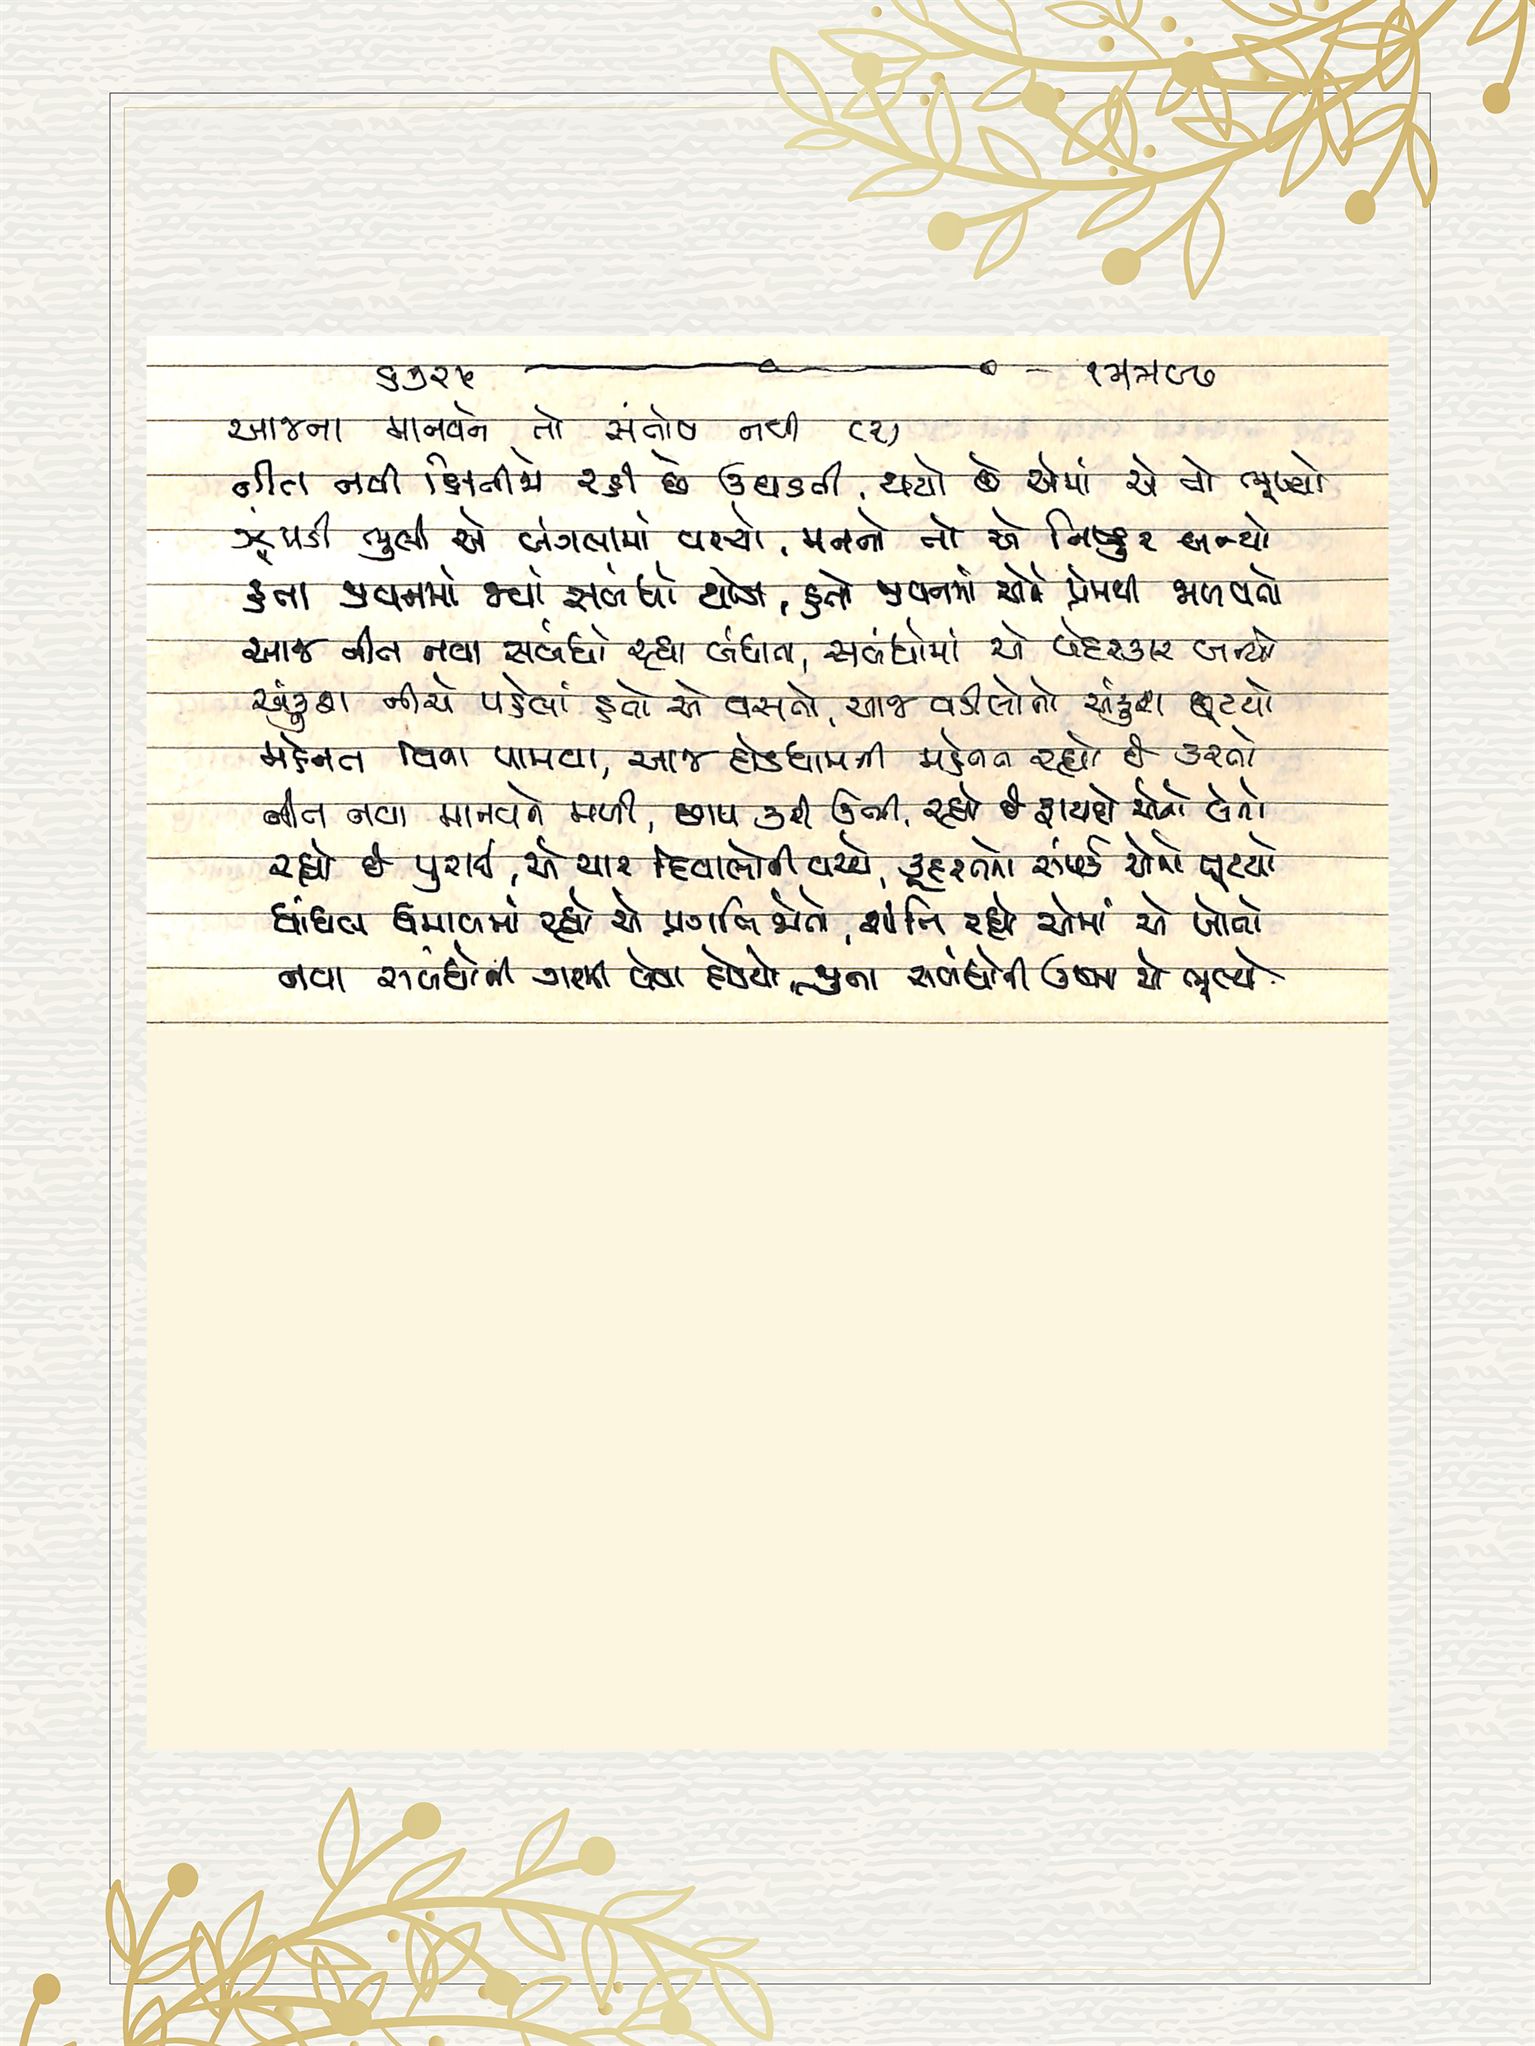 આજના માનવને તો સંતોષ નથી (૨)
નીત નવી ક્ષિતીજો રહી છે ઉઘડતી, થયો છે એમાં એ તો ભૂખ્યો
ઝૂંપડી ભુલી એ બંગલામાં વસ્યો, મનનો તો એ નિષ્ઠુર બન્યો
હતા જીવનમાં જ્યાં સબંધો થોડા, હતો જીવનમાં એને પ્રેમથી જાળવતો
આજ નીત નવા સબંધો રહ્યા બંધાતા, સબંધોમાં એ બેદરકાર બન્યો
અંકુશ નીચે પહેલાં હતો એ વસતો, આજ વડીલોનો અંકુશ છૂટયો
મહેનત વિના પામવા, આજ દોડધામની મહેનત રહ્યો છે કરતો
નીત નવા માનવને મળી, છાપ કરી ઉભી, રહ્યો છે ફાયદો એનો લેતો
રહ્યો છે પુરાઈ, એ ચાર દિવાલોની વચ્ચે, કૂદરતનો સંપર્ક એનો છૂટયો
ધાંધલ ધમાલમાં રહ્યો એ પ્રગતિ જોતો, શાંતિ રહ્યો એમાં એ ખોતો
નવા સબંધોની તાજગી લેવા દોડયો, જુના સબંધોની ઉષ્મા એ ભૂલ્યો